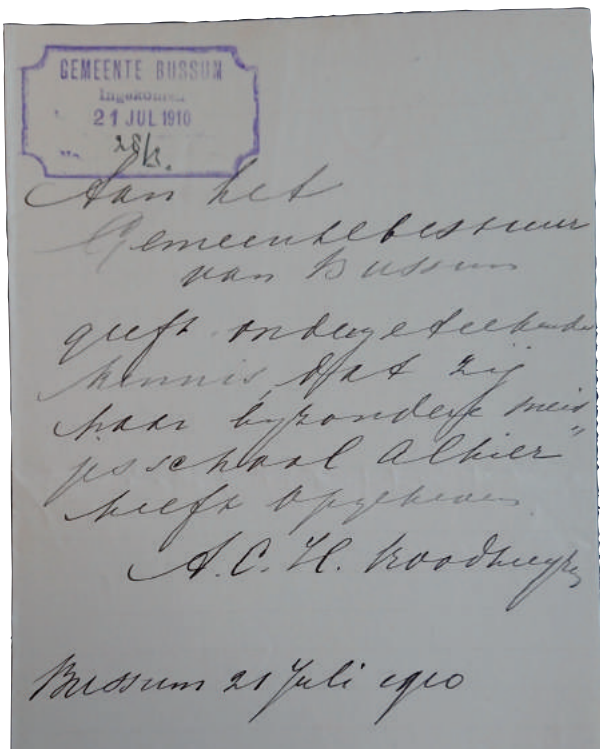 GEMEENTE BUSSUM
Ingekomen
21 JUL 1910
Aan het
Gemeentebestuur
van Bussum
geeft ondergeteekende
kennis, dat zij
haar byzondere meis
jesschool alhier
heeft opgeheven
A. C. H.
Bussum 21 Juli 1910